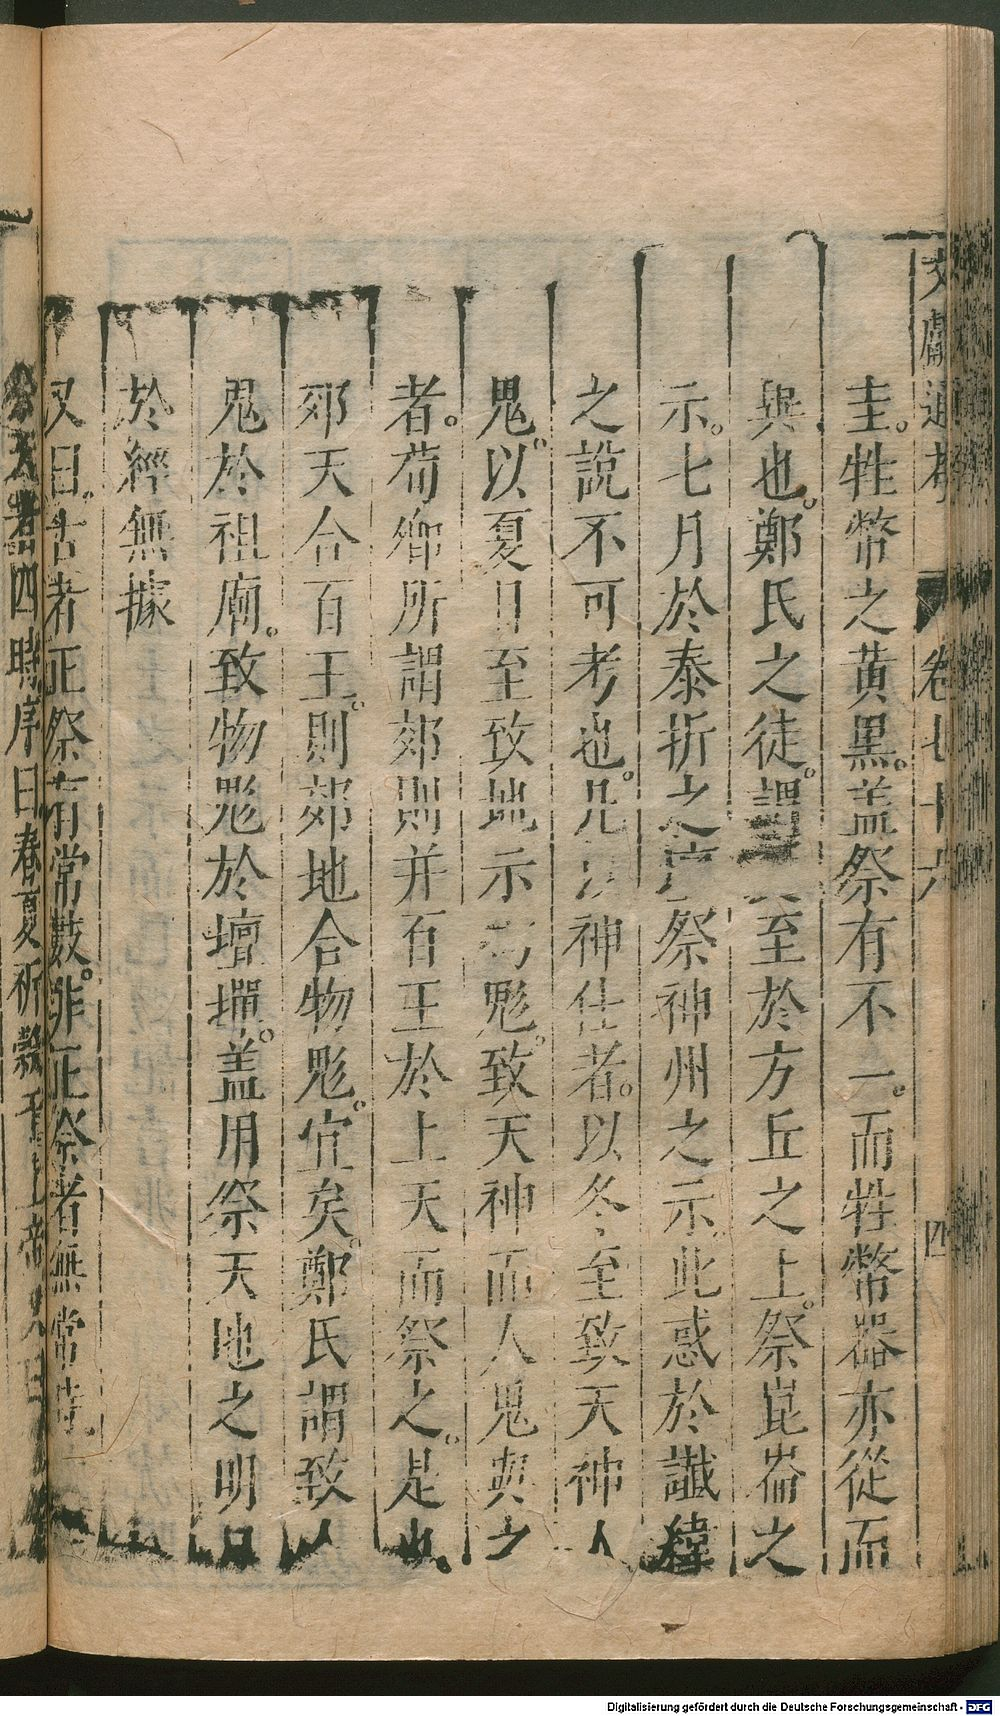 文獻通考 卷七十六 四
圭。牲幣之黃黑。盖祭有不一。而牲幣器亦從而
異也。鄭氏之徒。謂 至於方丘之上。祭崑崙之
示。七月於泰折之 祭神州之示此惑於讖緯
之說不可考也。凡 神仕者。以冬至致天神人
鬼。以夏日至致地示 鬽。致天神而人鬼與之
者。荀卿所謂郊則并百王於上天而祭之。是也
郊天合百王。則郊地合物鬽。宜矣。鄭氏謂致人
鬼於祖廟。致物鬽於壇墠。盖用祭天地之明日
於經無據
又曰。古者正祭有常數。非正祭者無常時。
四時序曰春夏祈穀于上帝
Digitalisierung gefördert durch die Deutsche Forschungsgemeinschaft - DFG